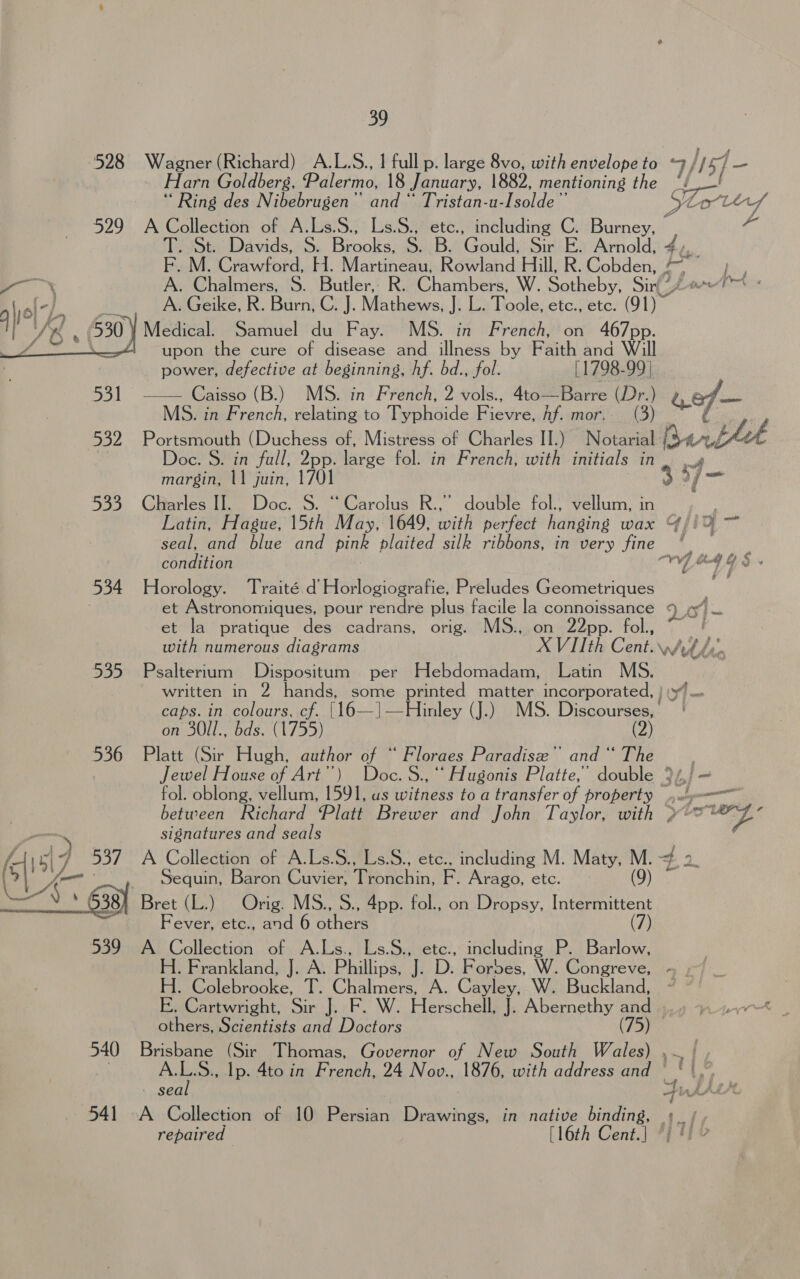 39
528 Wagner (Richard) A.L.S., 1 full p. large 8vo, with envelope to
Harn Goldberg, Palermo, 18 January, 1882, mentioning the
“Ring des Nibebrugen” and “Tristan-u-Isolde”
529 A Collection of A.Ls.S., Ls.S., etc., including C. Burney,
T. St. Davids, S. Brooks, S. B. Gould, Sir E. Arnold,
F. M. Crawford, H. Martineau, Rowland Hill, R. Cobden,
A. Chalmers, S. Butler, R. Chambers, W. Sotheby, Sir
A. Geike, R. Burn, C. J. Mathews, J. L. Toole, etc., etc. (91)
530 Medical. Samuel du Fay. MS. in French, on 467pp.
upon the cure of disease and illness by Faith and Will
power, defective at beginning, hf. bd., fol. [1798-99]
531 —— Caisso (B.) MS. in French, 2 vols., 4to—Barre (Dr.)
MS. in French, relating to Typhoide Fievre, hf. mor. (3)
532 Portsmouth (Duchess of, Mistress of Charles II.) Notarial
Doc. S. in full, 2pp. large fol. in French, with initials in
margin, 11 juin, 1701
533 Charles II. Doc. S. “Carolus R.,” double fol., vellum, in
Latin, Hague, 15th May, 1649, with perfect hanging wax
seal, and blue and pink plaited silk ribbons, in very fine
condition
534 Horology. Traité d'Horlogiografie, Preludes Geometriques
et Astronomiques, pour rendre plus facile la connoissance
et la pratique des cadrans, orig. MS., on 22pp. fol.,
with numerous diagrams XVIIth Cent.
535 Psalterium Dispositum per Hebdomadam, Latin MS.
written in 2 hands, some printed matter incorporated,
caps. in colours, cf. [16—]—Hinley (J.) MS. Discourses,
on 30ll., bds. (1755) (2)
536 Platt (Sir Hugh, author of “Floraes Paradisæ” and “The
Jewel House of Art”) Doc. S., “Hugonis Platte,” double
fol. oblong, vellum, 1591, as witness to a transfer of property
between Richard Platt Brewer and John Taylor, with
signatures and seals
537 A Collection of A.Ls.S., Ls.S., etc., including M. Maty, M.
Sequin, Baron Cuvier, Tronchin, F. Arago, etc. (9)
538 Bret (L.) Orig. MS., S., 4pp. fol., on Dropsy, Intermittent
Fever, etc., and 6 others (7)
539 A Collection of A.Ls., Ls.S., etc., including P. Barlow,
H. Frankland, J. A. Phillips, J. D. Forbes, W. Congreve,
H. Colebrooke, T. Chalmers, A. Cayley, W. Buckland,
E. Cartwright, Sir J. F. W. Herschell, J. Abernethy and
others, Scientists and Doctors (75)
540 Brisbane (Sir Thomas, Governor of New South Wales)
A.L.S., 1p. 4to in French, 24 Nov., 1876, with address and
seal
541 A Collection of 10 Persian Drawings, in native binding,
repaired [16th Cent.]